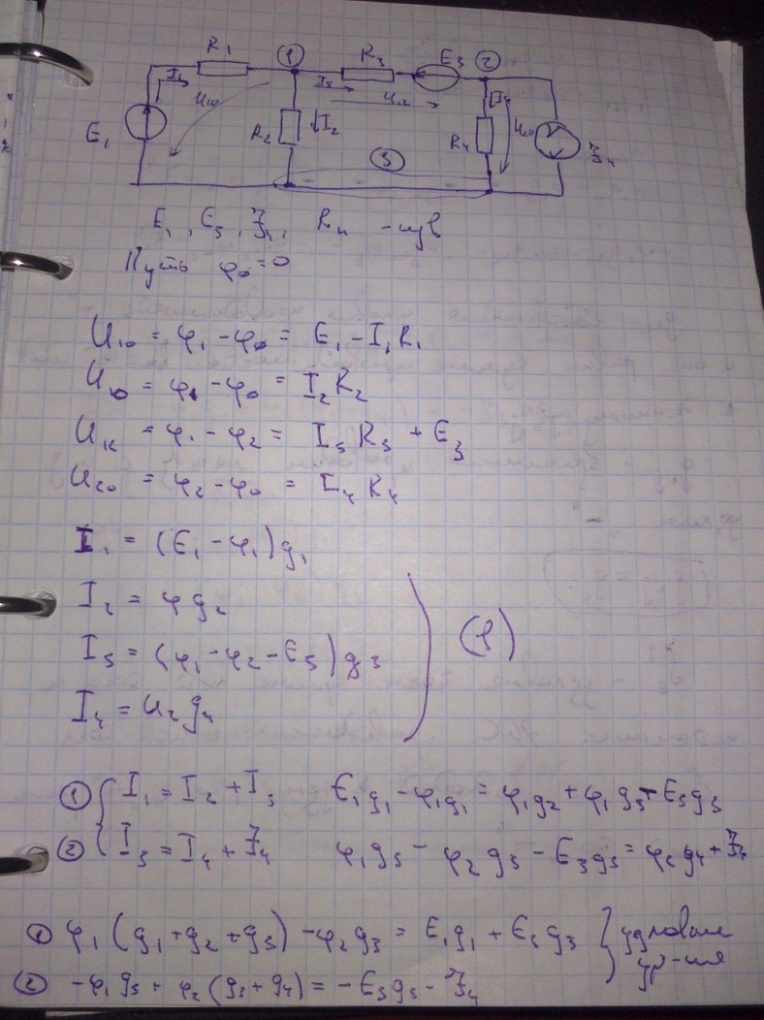 R₁ ① R₃ E₃ ②
I₁ U₁₀ I₃ U₁₂ I₄
E₁ R₂ I₂ R₄ U₂₀ J₄
③
E₁, E₃, J₄, Rₙ -
Пусть φ₀ = 0
U₁₀ = φ₁ - φ₀ = E₁ - I₁R₁
U₁₀ = φ₁ - φ₀ = I₂R₂
U₁₂ = φ₁ - φ₂ = I₃R₃ + E₃
U₂₀ = φ₂ - φ₀ = I₄R₄
I₁ = (E₁ - φ₁)g₁
I₂ = φg₂
I₃ = (φ₁ - φ₂ - E₃)g₃
I₄ = U₂g₄
① I₁ = I₂ + I₃ E₁g₁ - φ₁g₁ = φ₁g₂ + φ₁g₃ - E₃g₃
② I₃ = I₄ + J₄ φ₁g₃ - φ₂g₃ - E₃g₃ = φ₂g₄ + J₄
① φ₁(g₁ + g₂ + g₃) - φ₂g₃ = E₁g₁ + E₃g₃ } узловые
② -φ₁g₃ + φ₂(g₃ + g₄) = -E₃g₃ - J₄ ур-ния